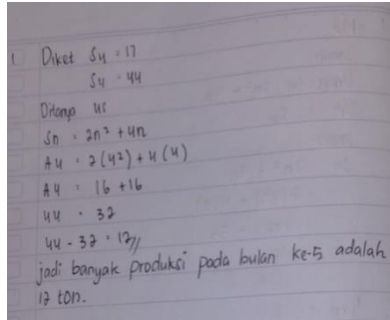 1. Diket S4 = 17
S4 = 44
Ditanya U5
Sn = 2n² + 4n
A4 = 2(4²) + 4(4)
A4 = 16 + 16
44 = 32
44 - 32 = 12 //
jadi banyak produksi pada bulan ke-5 adalah
12 ton.